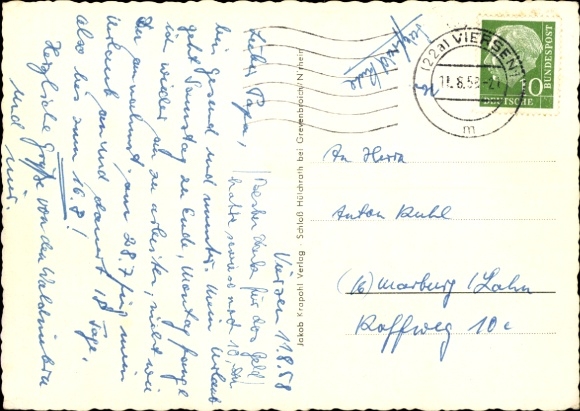 Viersen 11.8.58
Lieber Papa,
Besten Dank für das Geld
hatte sowieso noch 10.-DM
bin gesund und munter. Mein Urlaub
geht Samstag zu Ende, Montag fange
ich wieder an zu arbeiten, nicht wie
Du annahmst. am 28.7 fing mein
Urlaub an und dauert 18 Tage.
also bis zum 16.8!
Herzliche Grüße von den
und mir.
Jakob Krapohl Verlag · Schloß Hülchrath bei Grevenbroich/N'rhein
(22a) VIERSEN 1
11.8.58
m
DEUTSCHE
BUNDESPOST
10
An Herrn
Anton Kuhl
(16) Marburg /Lahn
Roffweg 10c